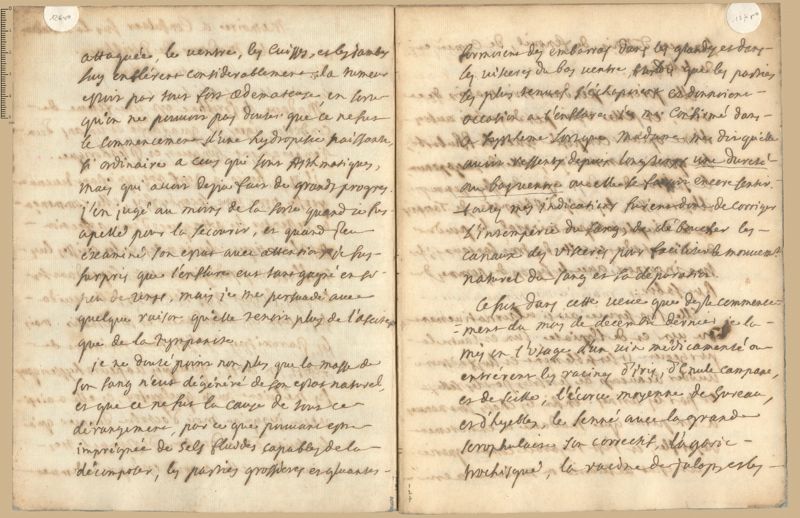 attaquée, le ventre, les Cuisses, et les jambes
luy enflérent considerablement; la tumeur
estoit par tout fort œdemateuse, en sorte
qu'on ne pouvoit pas douter que ce ne fut
le commencement d'une hydropisie naissante
si ordinaire a ceus qui sont Asthmatiques,
mais qui avoit desja fait de grands progres.
j'en jugé au moins de la sorte quand je fus
apellé pour la secourir, et quand j'eu
examiné son estat avec attention, je fus
surpris que l'enflure eut tant gagné en si
peu de temps, mais je me persuadé avec
quelque raison qu'elle tenoit plus de l'ascite
que de la tympanite.
je ne douté point non plus que la masse de
son sang n'eut degéneré de son estat naturel,
et que ce ne fut la cause de tout ce
dérangement, par ce que pouvant estre
impregnée de sels fluides capables de la
décomposer, les parties grossieres et
formoient des embarras dans les glandes et dans
les visceres du bas ventre, tandis que les parties
les plus tenues s'échapoient et donnoient
occasion a l'enflure. je me confirmé dans
ce systeme lorsque Madame me dit qu'elle
avoit ressenty depuis longtemps une dureté
au bas ventre ou elle se faisoit encore sentir.
toutes mes indications furent donc de corriger
l'intemperie du sang, de déboucher les
canaux des visceres pour faciliter le mouvement
naturel du sang et sa dépuration.
Ce fut dans cette veue que des le commence-
-ment du mois de decembre dernier je la
mis en l'usage d'un vin médicamenté ou
entrérent les racines d'iris, d'Enule campane,
et de scille, l'écorce moyenne de sureau,
et d'hyebles, le senné avec la grande
scrophulaire son correctif, l'agaric
trochisqué, la racine de jalap, et les